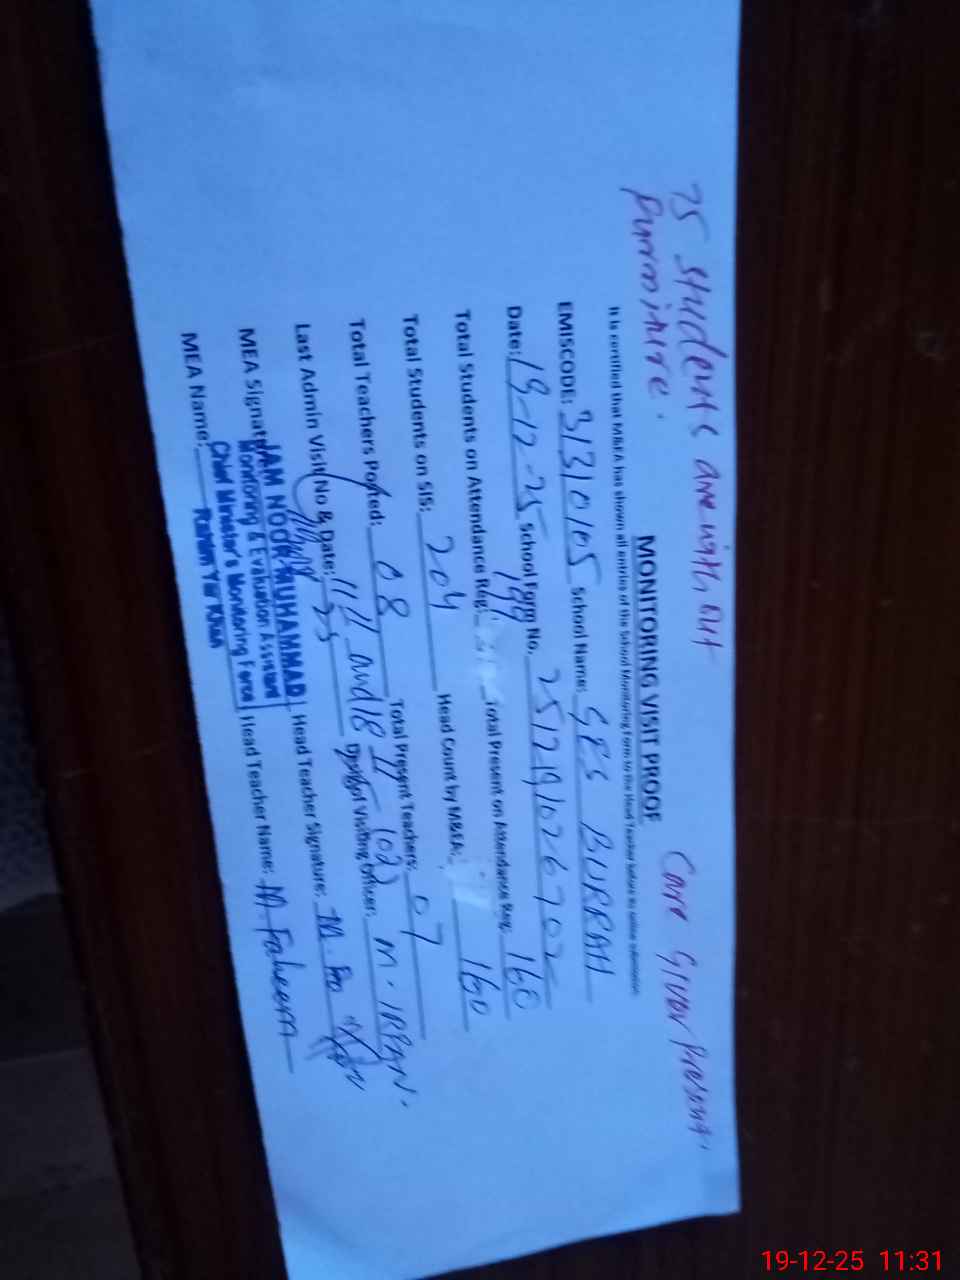 75 students are with out
Care Giver present.
Furniture.
MONITORING VISIT PROOF
It is certified that M&EA has shown all entries of the School Monitoring Form to the Head Teacher before its online submission
EMISCODE: 31310105 School Name: GES BURRAH
Date: 19-12-25 School Form No. 2512191026702
Total Students on Attendance Reg: 199 Total Present on Attendance Reg. 160
Total Students on SIS: 204 Head Count by M&EA: 160
Total Teachers Posted: 08 Total Present Teachers: 07
Last Admin Visit No & Date: 11/11 and 18 11 25 (02) Desig of Visiting Officer: M. IRFAN.
MEA Signature Head Teacher Signature: M.
MEA Name: Head Teacher Name: M. Faheem
JAM NOOR MUHAMMAD
Monitoring & Evaluation Assistant
Chief Minister's Monitoring Force
Rahim Yar Khan
19-12-25 11:31